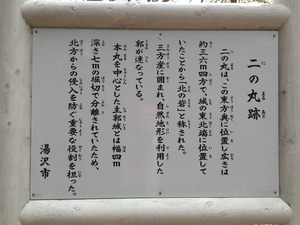 二の丸跡
二の丸は、この東方奥に位置し広さは
約三六m四方で、城の東北端に位置して
いたことから「北の砦」と称された。
三方崖に囲まれ自然地形を利用した
郭が連なっている。
本丸を中心とした主郭域とは幅四m
深さ七mの堀切で分離されていたため、
北方からの侵入を防ぐ重要な役割を担った。
湯沢市